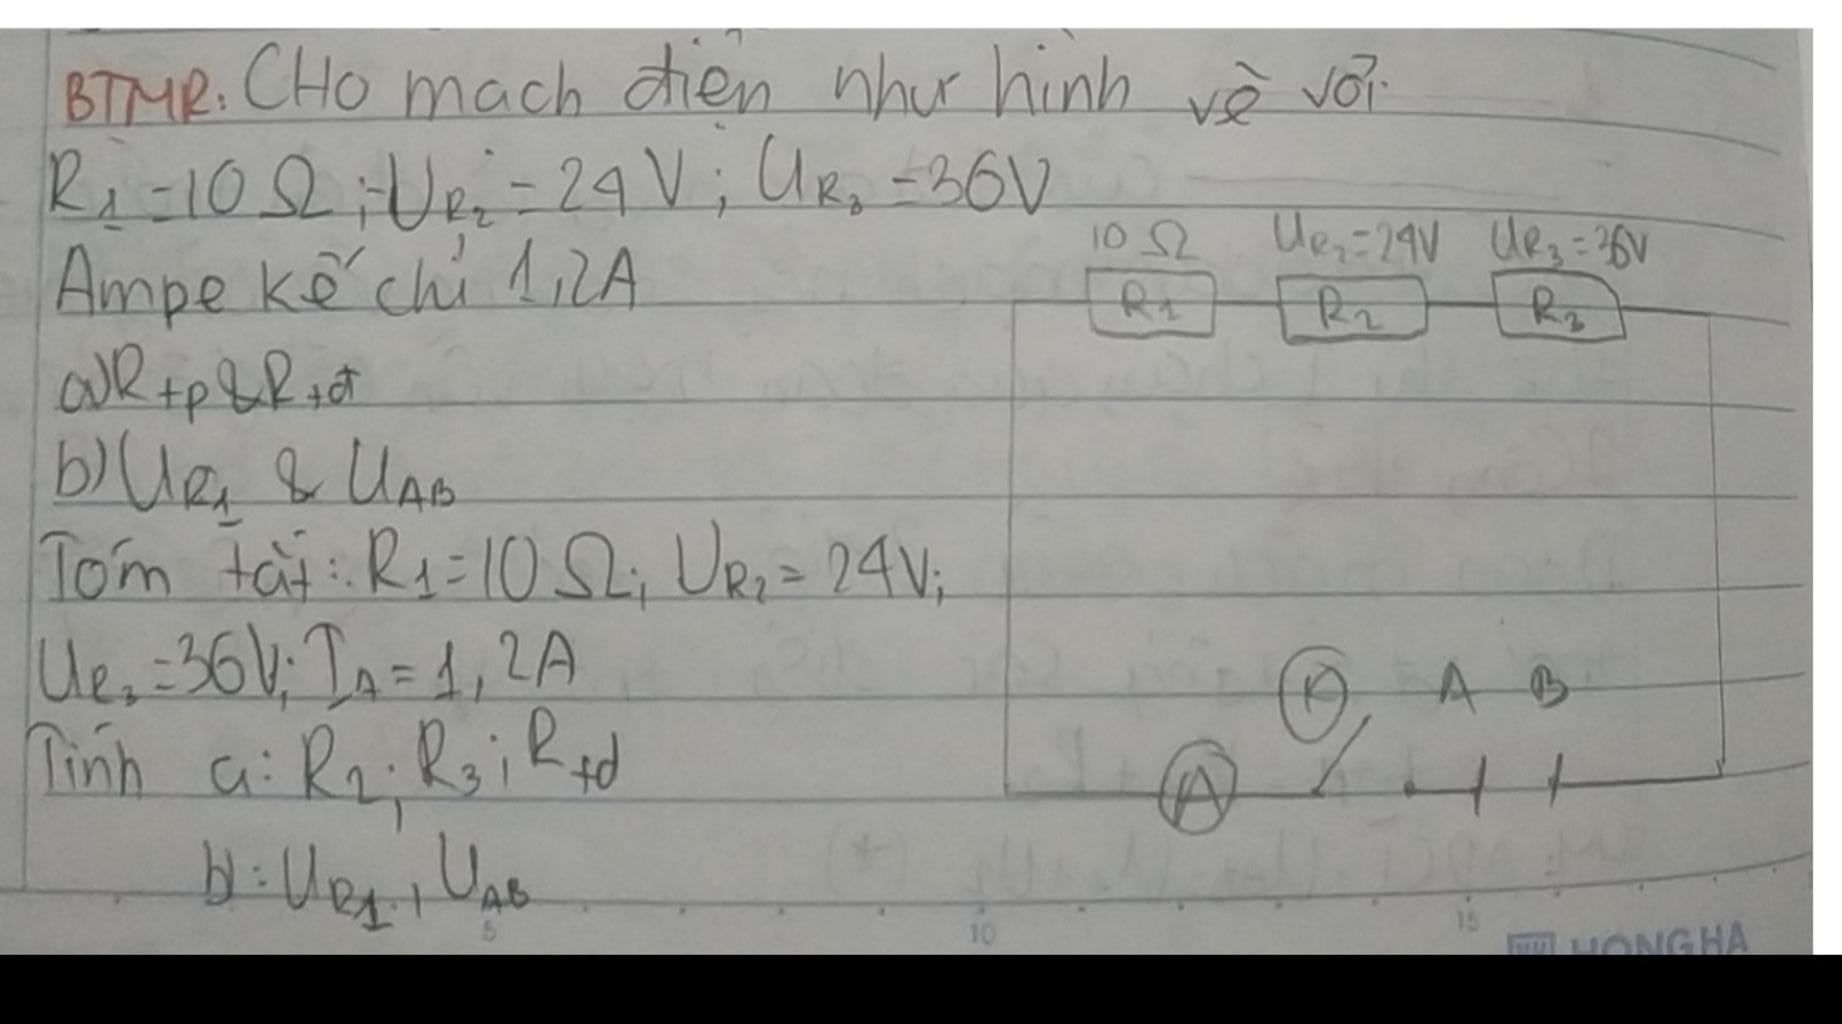 BTMR: CHo mạch điện như hình vẽ với.
R1 = 10 Ω; UR2 = 24 V; UR3 = 36V
Ampe kế chỉ 1,2A
a) Rtp & Rtđ
b) UR1 & UAB
Tóm tắt: R1 = 10 Ω; UR2 = 24V;
UR3 = 36V; IA = 1,2A
Tính a: R2; R3; Rtd
b: UR1, UAB
10 Ω UR2 = 24V UR3 = 36V
R1 R2 R3
K A B
A
5 10 15
HONG HA